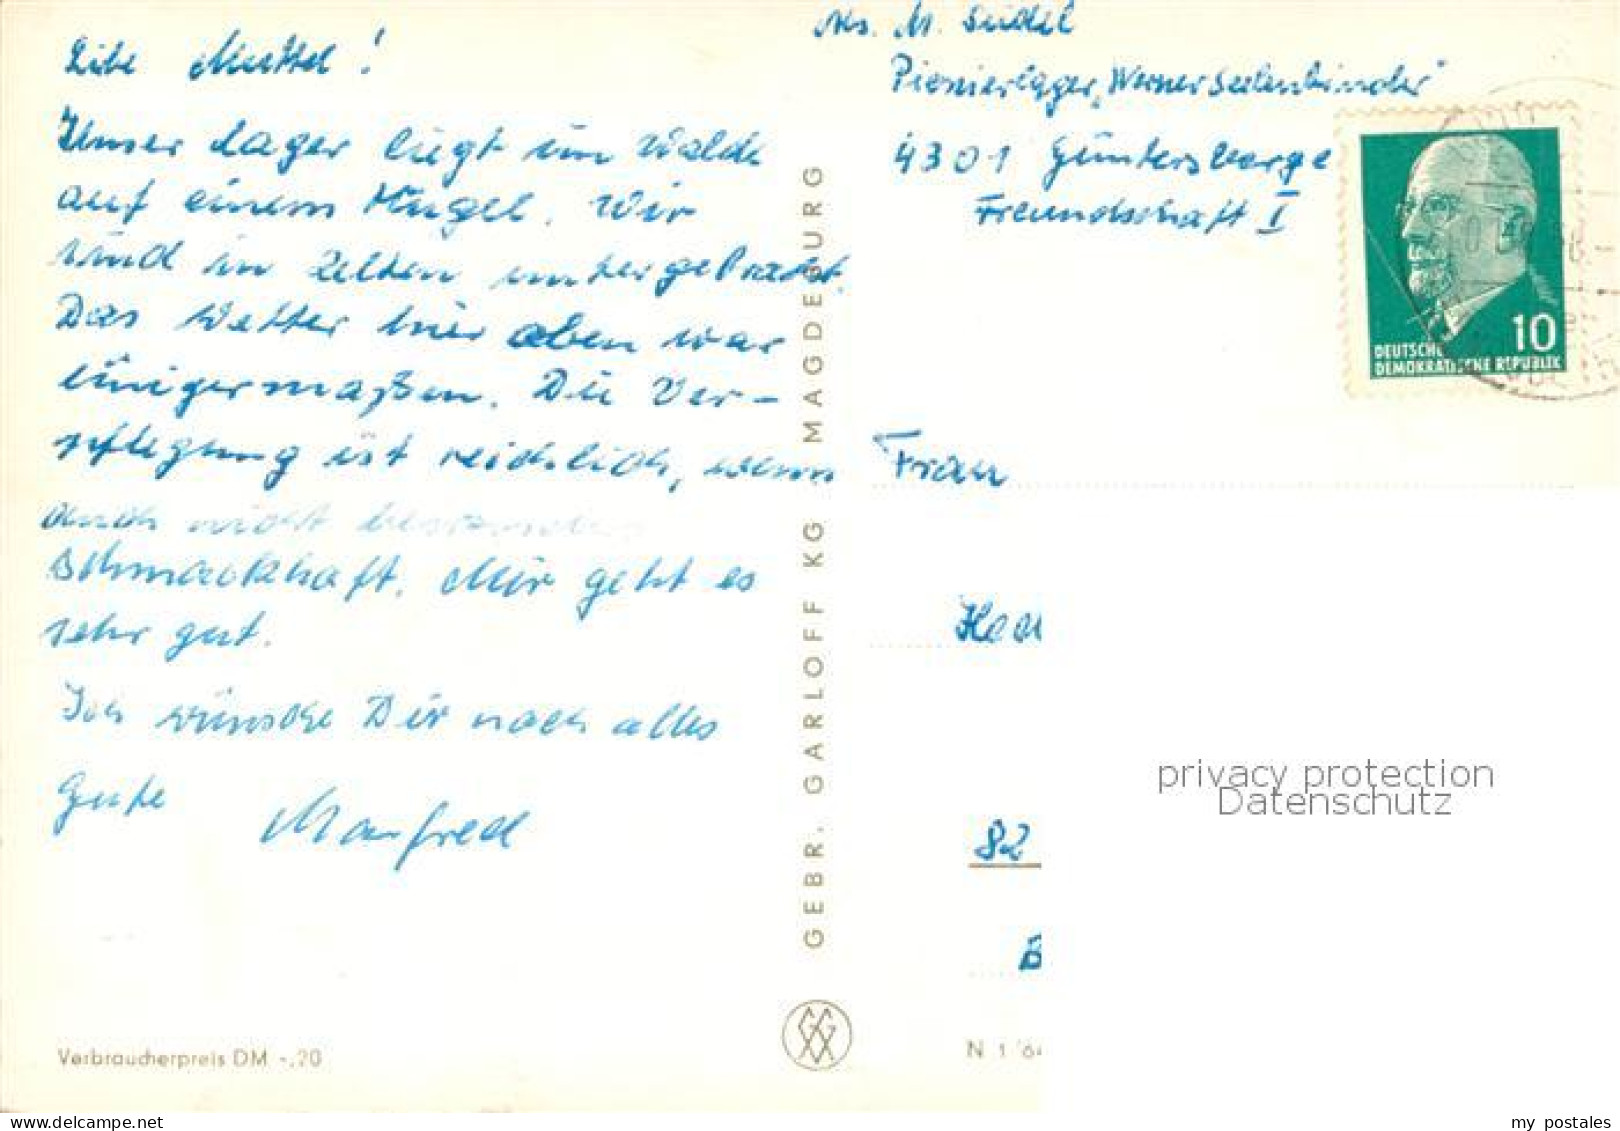 Liebe Muttel!
Unser Lager liegt im Walde
auf einem Hügel. Wir
sind in Zelten untergebracht.
Das Wetter hier oben war
einigermaßen. Die Ver-
pflegung ist reichlich, wenn
auch nicht besonders
schmackhaft. Mir geht es
sehr gut.
Ich wünsche Dir noch alles
Gute Manfred
Verbraucherpreis DM -,20
GEBR. GARLOFF KG MAGDEBURG
Abs. M. Seidel
Pionierlager „Werner Seelenbinder"
4301 Güntersberge
Freundschaft I
10
DEUTSCHE
DEMOKRATISCHE REPUBLIK
Frau
82
B
N 1/64
privacy protection
Datenschutz
my postales